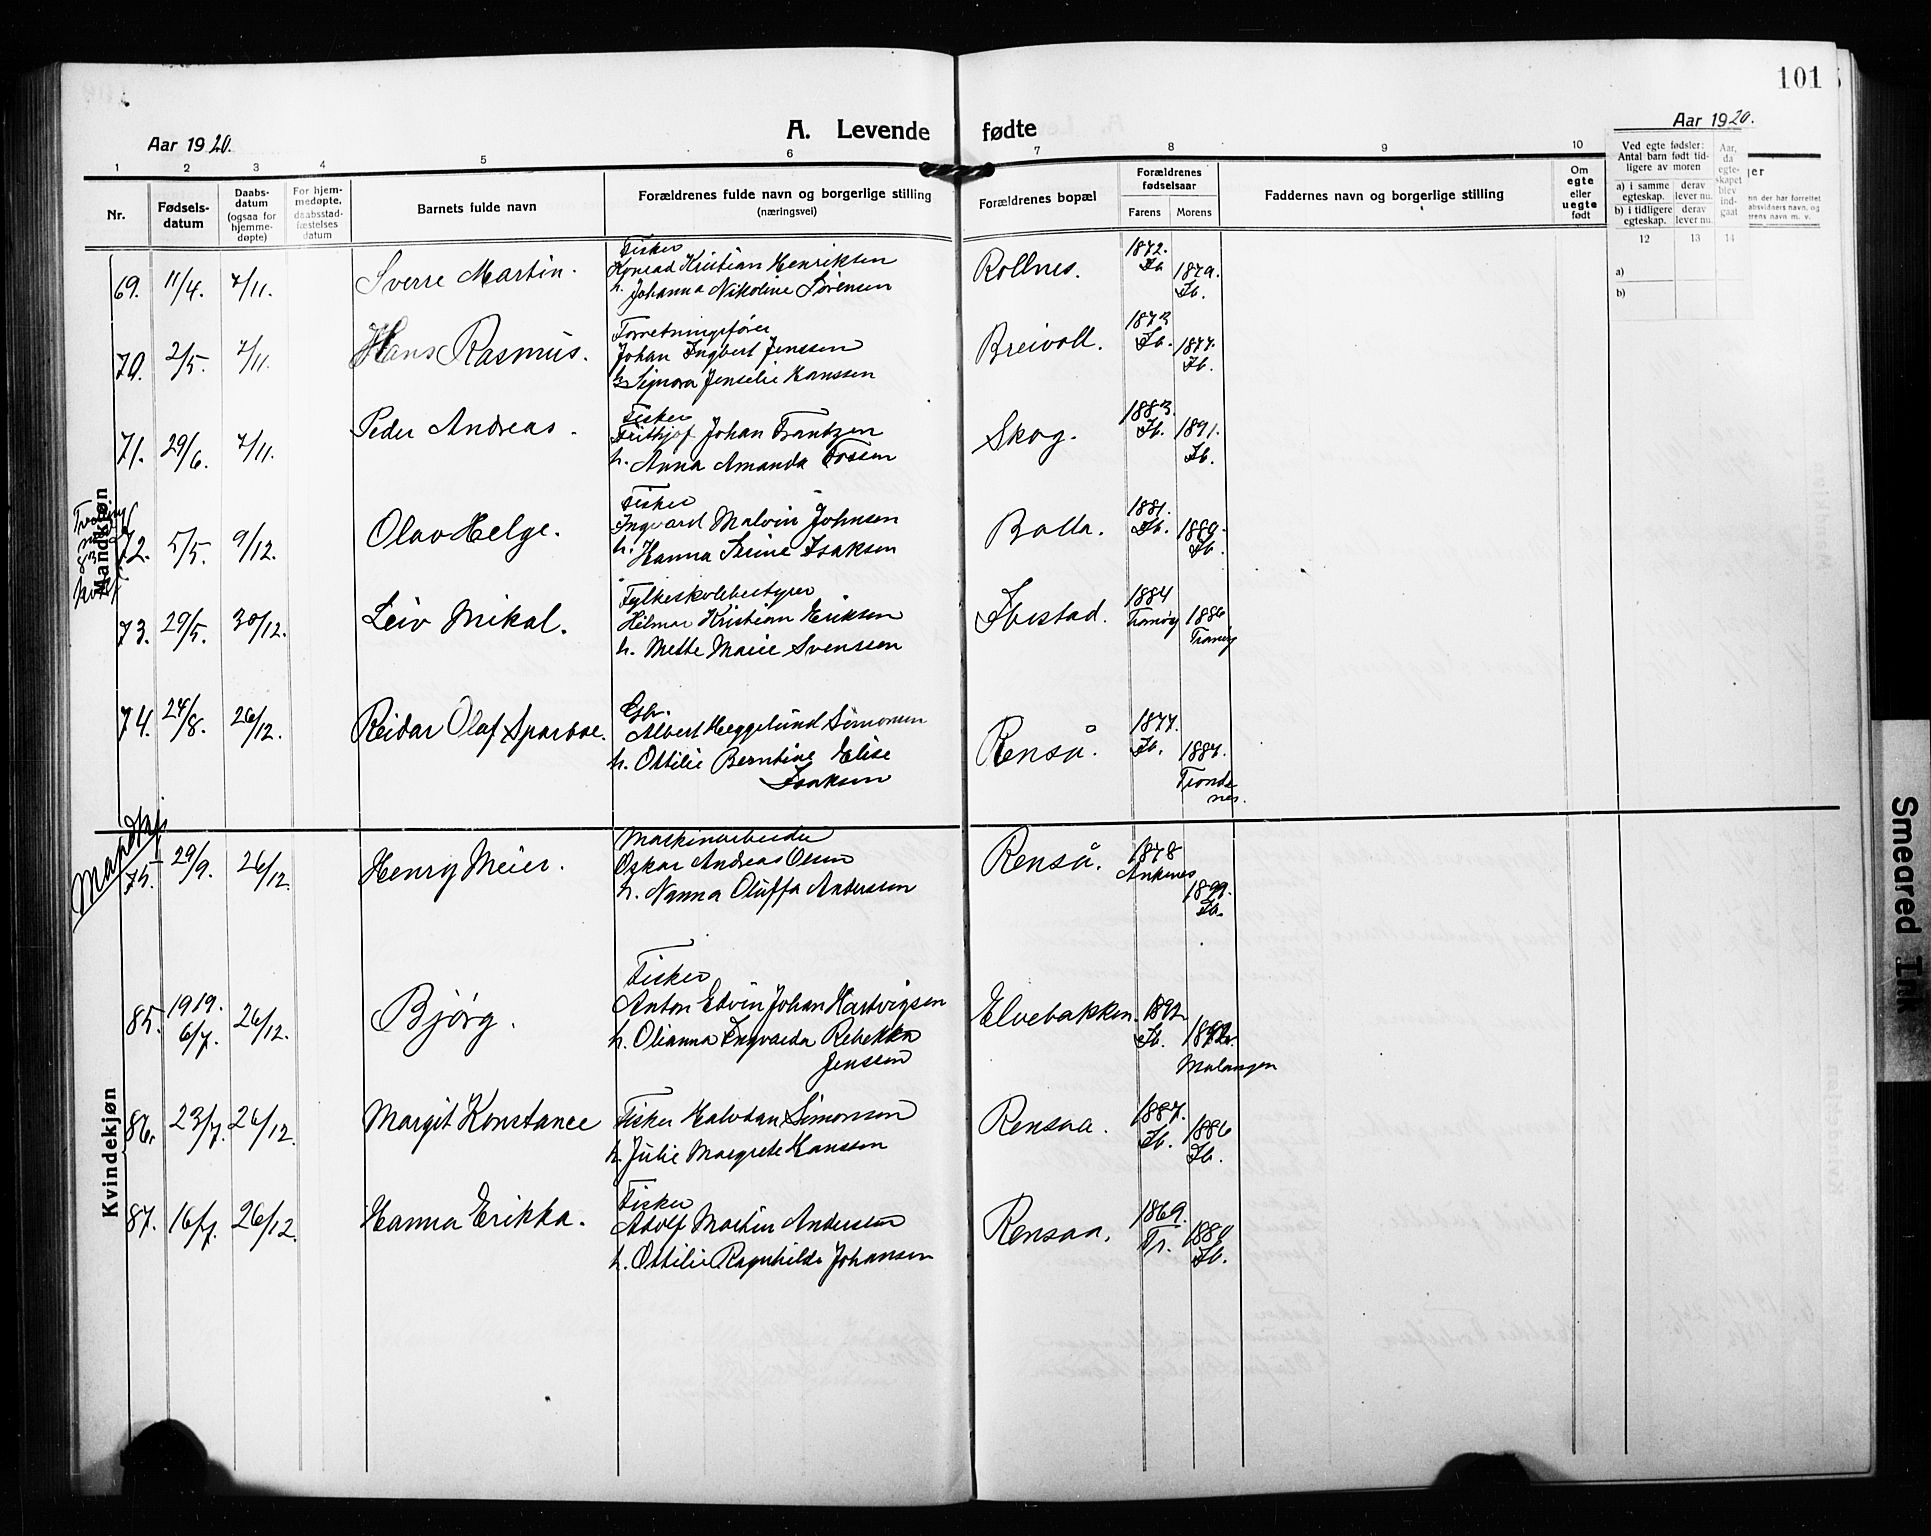 101
A. Levende fødte
Aar 1920.
Aar 1920.
1 2 3 4 5 6 7 8 9 10
Nr.
Fødsels-
datum
Daabs-
datum
(ogsaa for
hjemme-
døpte)
For hjem-
medøpte,
daabsstad-
fæstelses
datum
Barnets fulde navn
Forældrenes fulde navn og borgerlige stilling
(næringsvei)
Forældrenes bopæl
Forældrenes
fødselsaar
Farens Morens
Faddernes navn og borgerlige stilling
Om
egte
eller
uegte
født
Ved egte fødsler:
Antal barn født tid-
ligere av moren
a) i samme
egteskap.
derav
lever nu.
b) i tidligere
egteskap.
derav
lever nu.
Aar,
da
egte-
skapet
blev
ind-
gaat
12 13 14
a)
b)
Mandkjøn
69. 11/4. 7/11. Sverre Martin.
Fisker
Konrad Kristian Henriksen
h. Johanna Nikoline Sørensen
Rollnes. 1872. Ib. 1879. Ib.
70. 2/5. 7/11. Hans Rasmus.
Forretningsfører
Johan Ingbert Jenssen
h. Signora Jenselie Hanssen
Breivoll. 1873. Ib. 1877. Ib.
71. 29/6. 7/11. Peder Andreas.
Fisker
Frithjof Johan Frantzen
h. Anna Amanda Tossen
Skog. 1883. Ib. 1891. Ib.
72. 5/5. 9/12. Olav Helge.
Fisker
Ingvard Malvin Johnsen
h. Hanna Serine Isaksen
Bolla. 1881. Ib. 1889. Ib.
73. 29/5. 30/12. Leiv Mikal.
Fylkeskolebestyrer
Hilmar Kristian Eriksen
h. Mette Marie Svenssen
Ibestad. 1884 Tranøy 1886 Tranøy
74. 24/8. 26/12. Reidar Olaf Sparboe.
Gbr.
Albert Heggelund Simonsen
h. Ottilie Berntine Elise
Isaksen
Renså. 1877. Ib. 1887. Tronde
nes.
Mandkj
75. 29/9. 26/12. Henry Meier.
Maskinarbeider
Oskar Andreas Olsen
h. Nanna Oluffa Anderssen
Renså. 1878 Ankenes 1899. Ib.
Kvindekjøn
85. 1919. 6/7. 26/12. Bjørg.
Fisker
Anton Edvin Johan Hartvigsen
h. Olianna Ingvarda Rebekka
Jenssen
Elvebakken. 1892 Ib. Malangen
86. 23/7. 26/12. Margit Konstance
Fisker Halvdan Simonsen
h. Julie Margrete Hanssen
Rensaa. 1887. Ib. 1886 Ib.
87. 16/7. 26/12. Hanna Erikka.
Fisker
Adolf Martin Anderssen
h. Ottilie Ragnhilda Johansen
Rensaa. 1869. Tr. 1880 Ib.
Smeared Ink